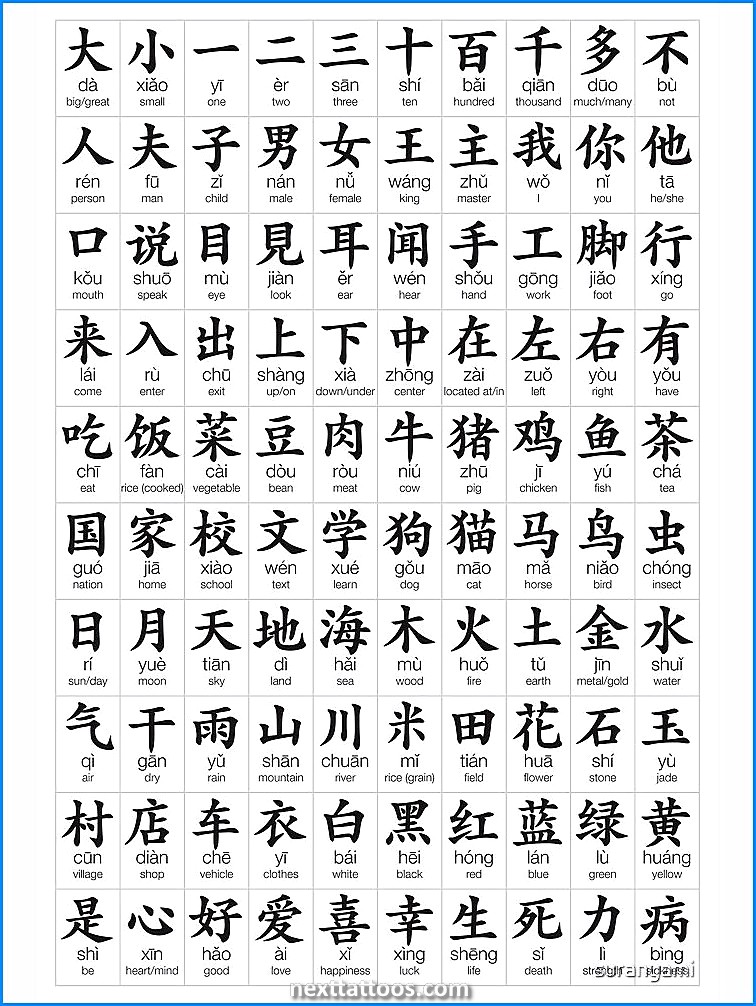 大 小 一 二 三 十 百 千 多 不
dà xiǎo yī èr sān shí bǎi qiān duō bù
big/great small one two three ten hundred thousand much/many not
人 夫 子 男 女 王 主 我 你 他
rén fū zǐ nán nǚ wáng zhǔ wǒ nǐ tā
person man child male female king master I you he/she
口 说 目 見 耳 闻 手 工 脚 行
kǒu shuō mù jiàn ěr wén shǒu gōng jiǎo xíng
mouth speak eye look ear hear hand work foot go
来 入 出 上 下 中 在 左 右 有
lái rù chū shàng xià zhōng zài zuǒ yòu yǒu
come enter exit up/on down/under center located at/in left right have
吃 饭 菜 豆 肉 牛 猪 鸡 鱼 茶
chī fàn cài dòu ròu niú zhū jī yú chá
eat rice (cooked) vegetable bean meat cow pig chicken fish tea
国 家 校 文 学 狗 猫 马 鸟 虫
guó jiā xiào wén xué gǒu māo mǎ niǎo chóng
nation home school text learn dog cat horse bird insect
日 月 天 地 海 木 火 土 金 水
rí yuè tiān dì hǎi mù huǒ tǔ jīn shuǐ
sun/day moon sky land sea wood fire earth metal/gold water
气 干 雨 山 川 米 田 花 石 玉
qì gān yǔ shān chuān mǐ tián huā shí yù
air dry rain mountain river rice (grain) field flower stone jade
村 店 车 衣 白 黑 红 蓝 绿 黄
cūn diàn chē yī bái hēi hóng lán lù huáng
village shop vehicle clothes white black red blue green yellow
是 心 好 爱 喜 幸 生 死 力 病
shì xīn hǎo ài xǐ xìng shēng sǐ lì bìng
be heart/mind good love happiness luck life death strength sickness
surangani
nexttattoos.com